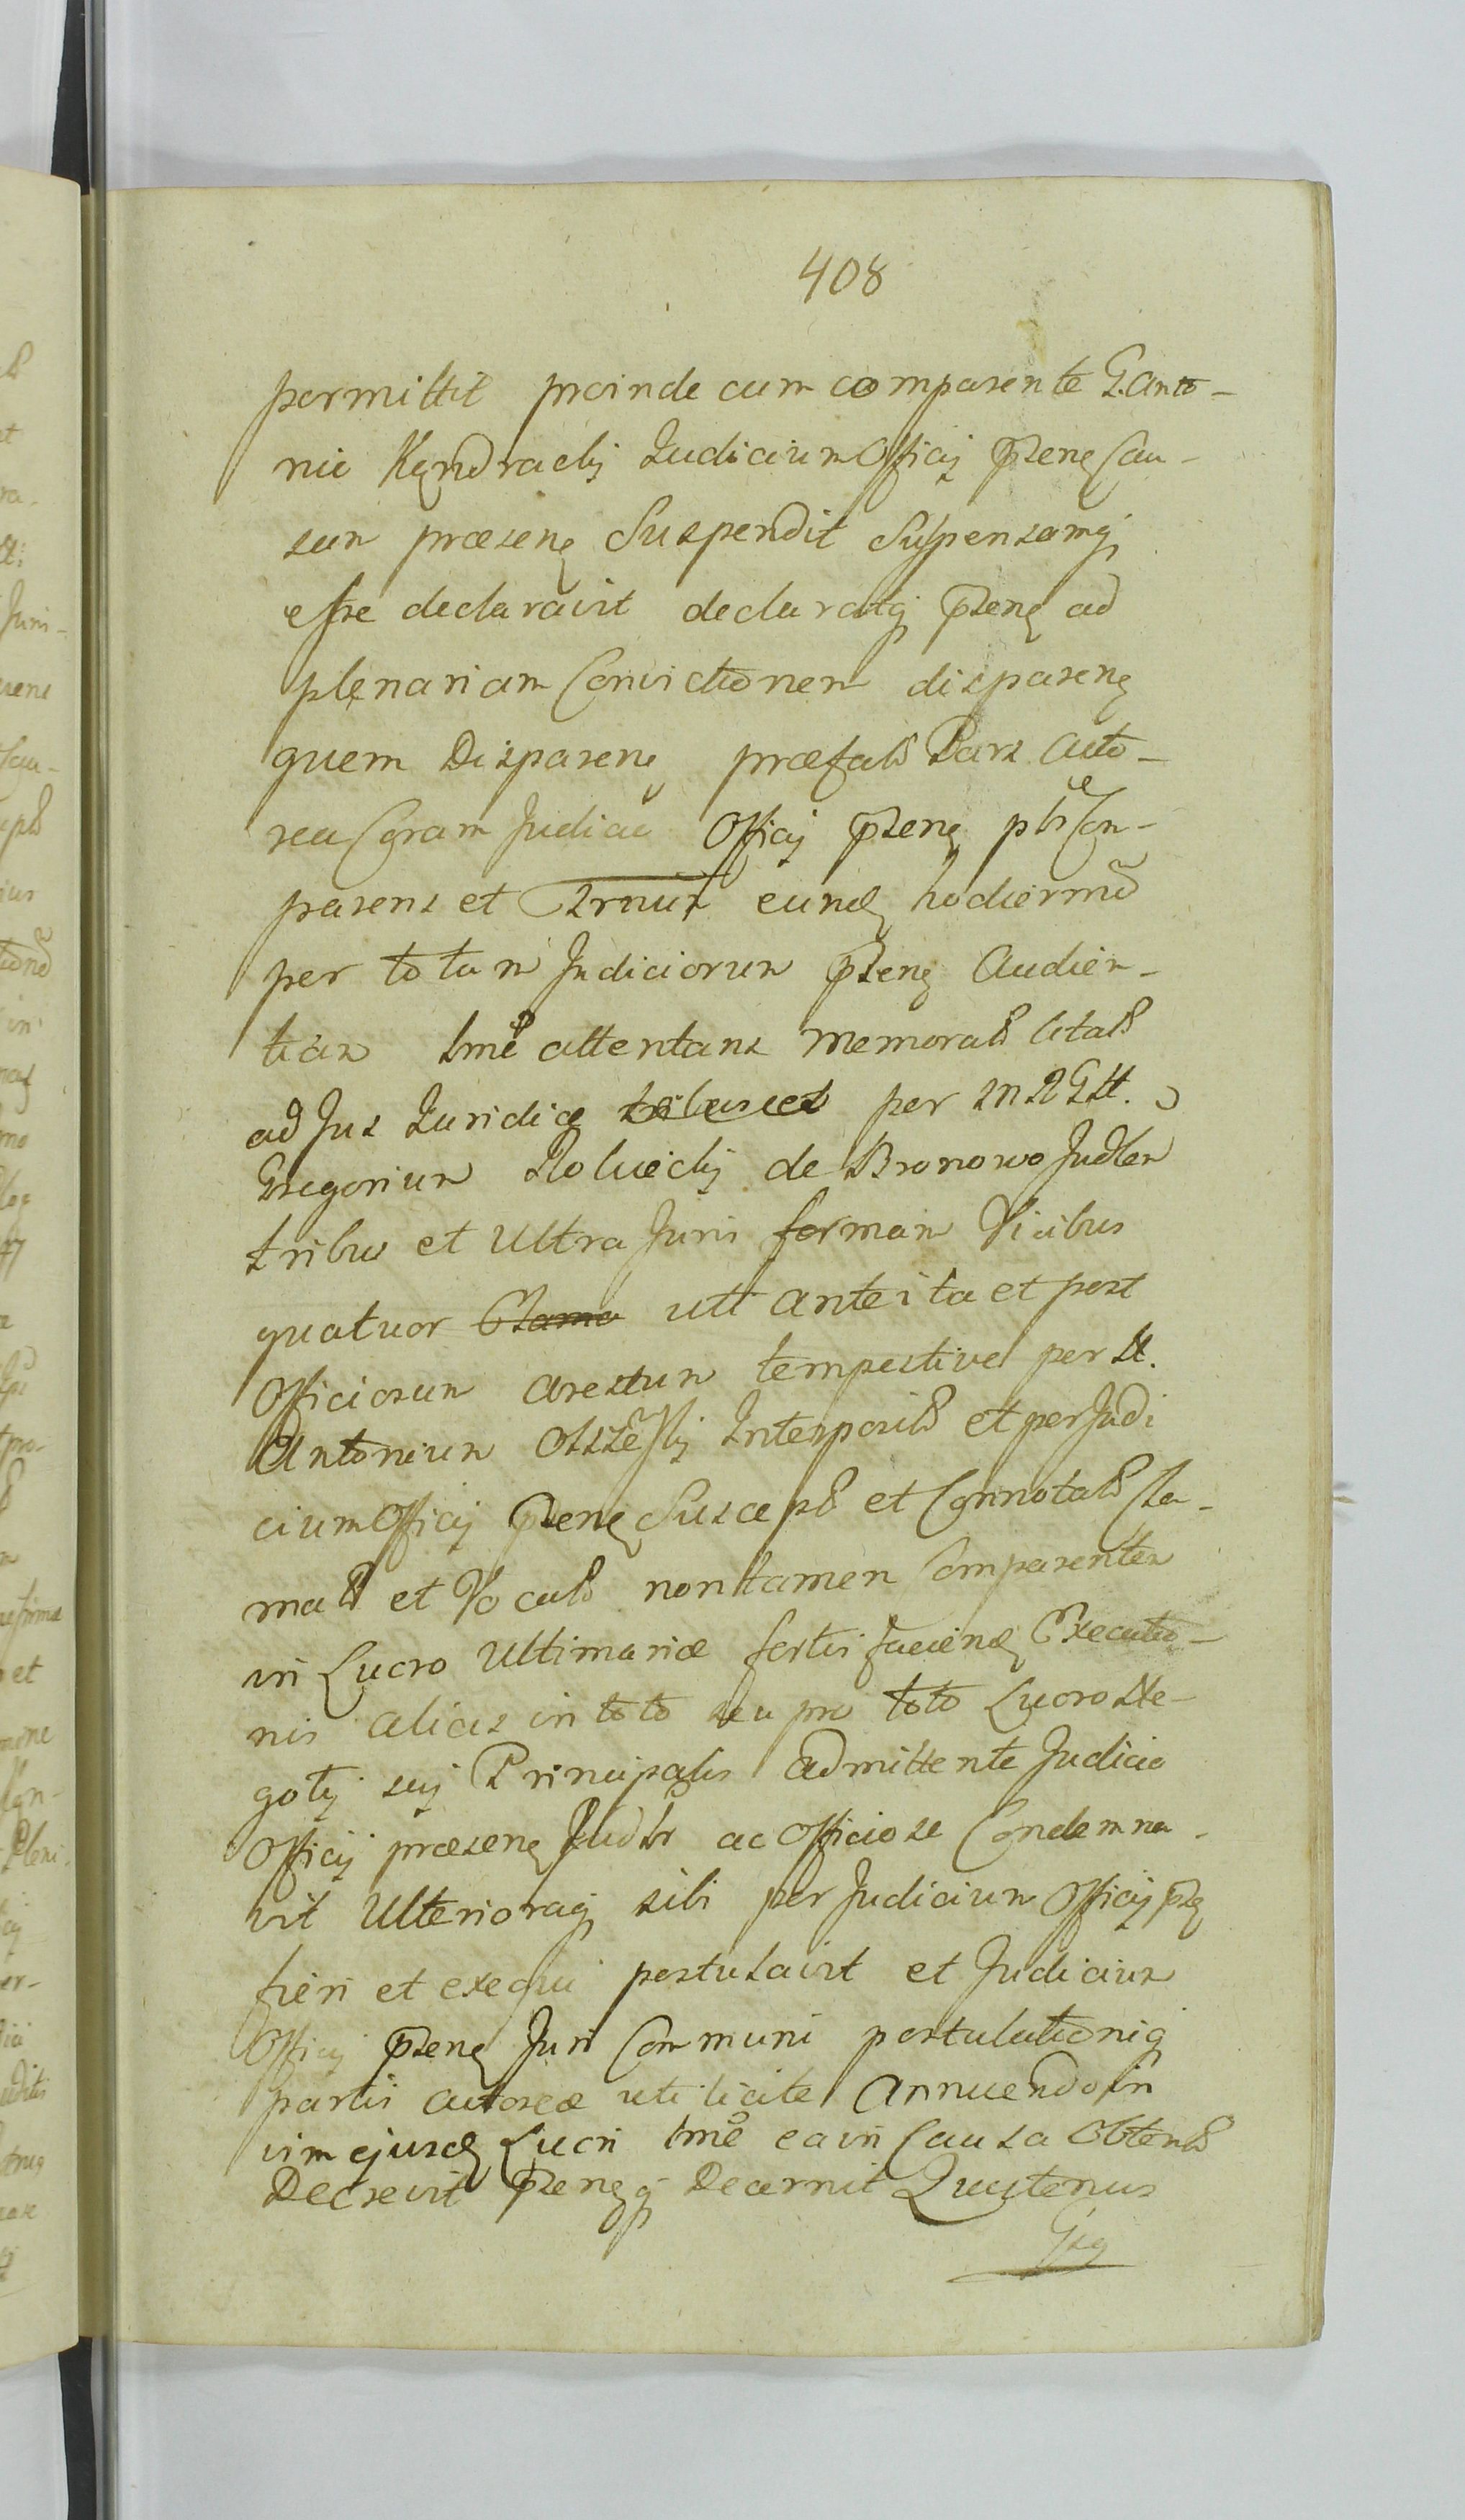 408
permittit proinde cum comparente G. Anto-
nio Kondracki Judicium Officij pñene Cau-
sam præsene Suspendit Suspensamqj
esse declaravit declaratqj pñene ad
plenariam Convictionem disparene
quem Disparene præfato Pars Acto-
rea Coram Judicio Officij pñene pltr Com-
parens et eunde hodierno
per totam Judiciorum pñene Audien-
tiam tme attentans memorato Citato
ad Jus Juridice per
Gregorium de Bronowo Judlem
tribus et Ultra Juris formam Vicibus
quatuor uti ante ita et post
Officiosum arestum tempestive per
Antonium Interposito et per Judi
cium Officij pñene Suscepto et Connotato Cla-
mato et Vocato non tamen Comparentem
in Lucro Ultimariæ fortis faciende Executio-
nis alias in toto seu pro toto Lucro Ne-
gotij suj Principalis Admittente Judicio
Officij præsene Judlr ac Officiose Condemna-
vit Ulterioraqj sibi per Judicium Officij pñe
fieri et exequi postulavit et Judicium
Officij pñene Juri Communi postulationiqj
partis actoreæ uti licite Annuendo in
vim ejusde Lucri tme ea in Causa Obtento
Decrevit pñeneqj Decernit Quatenus